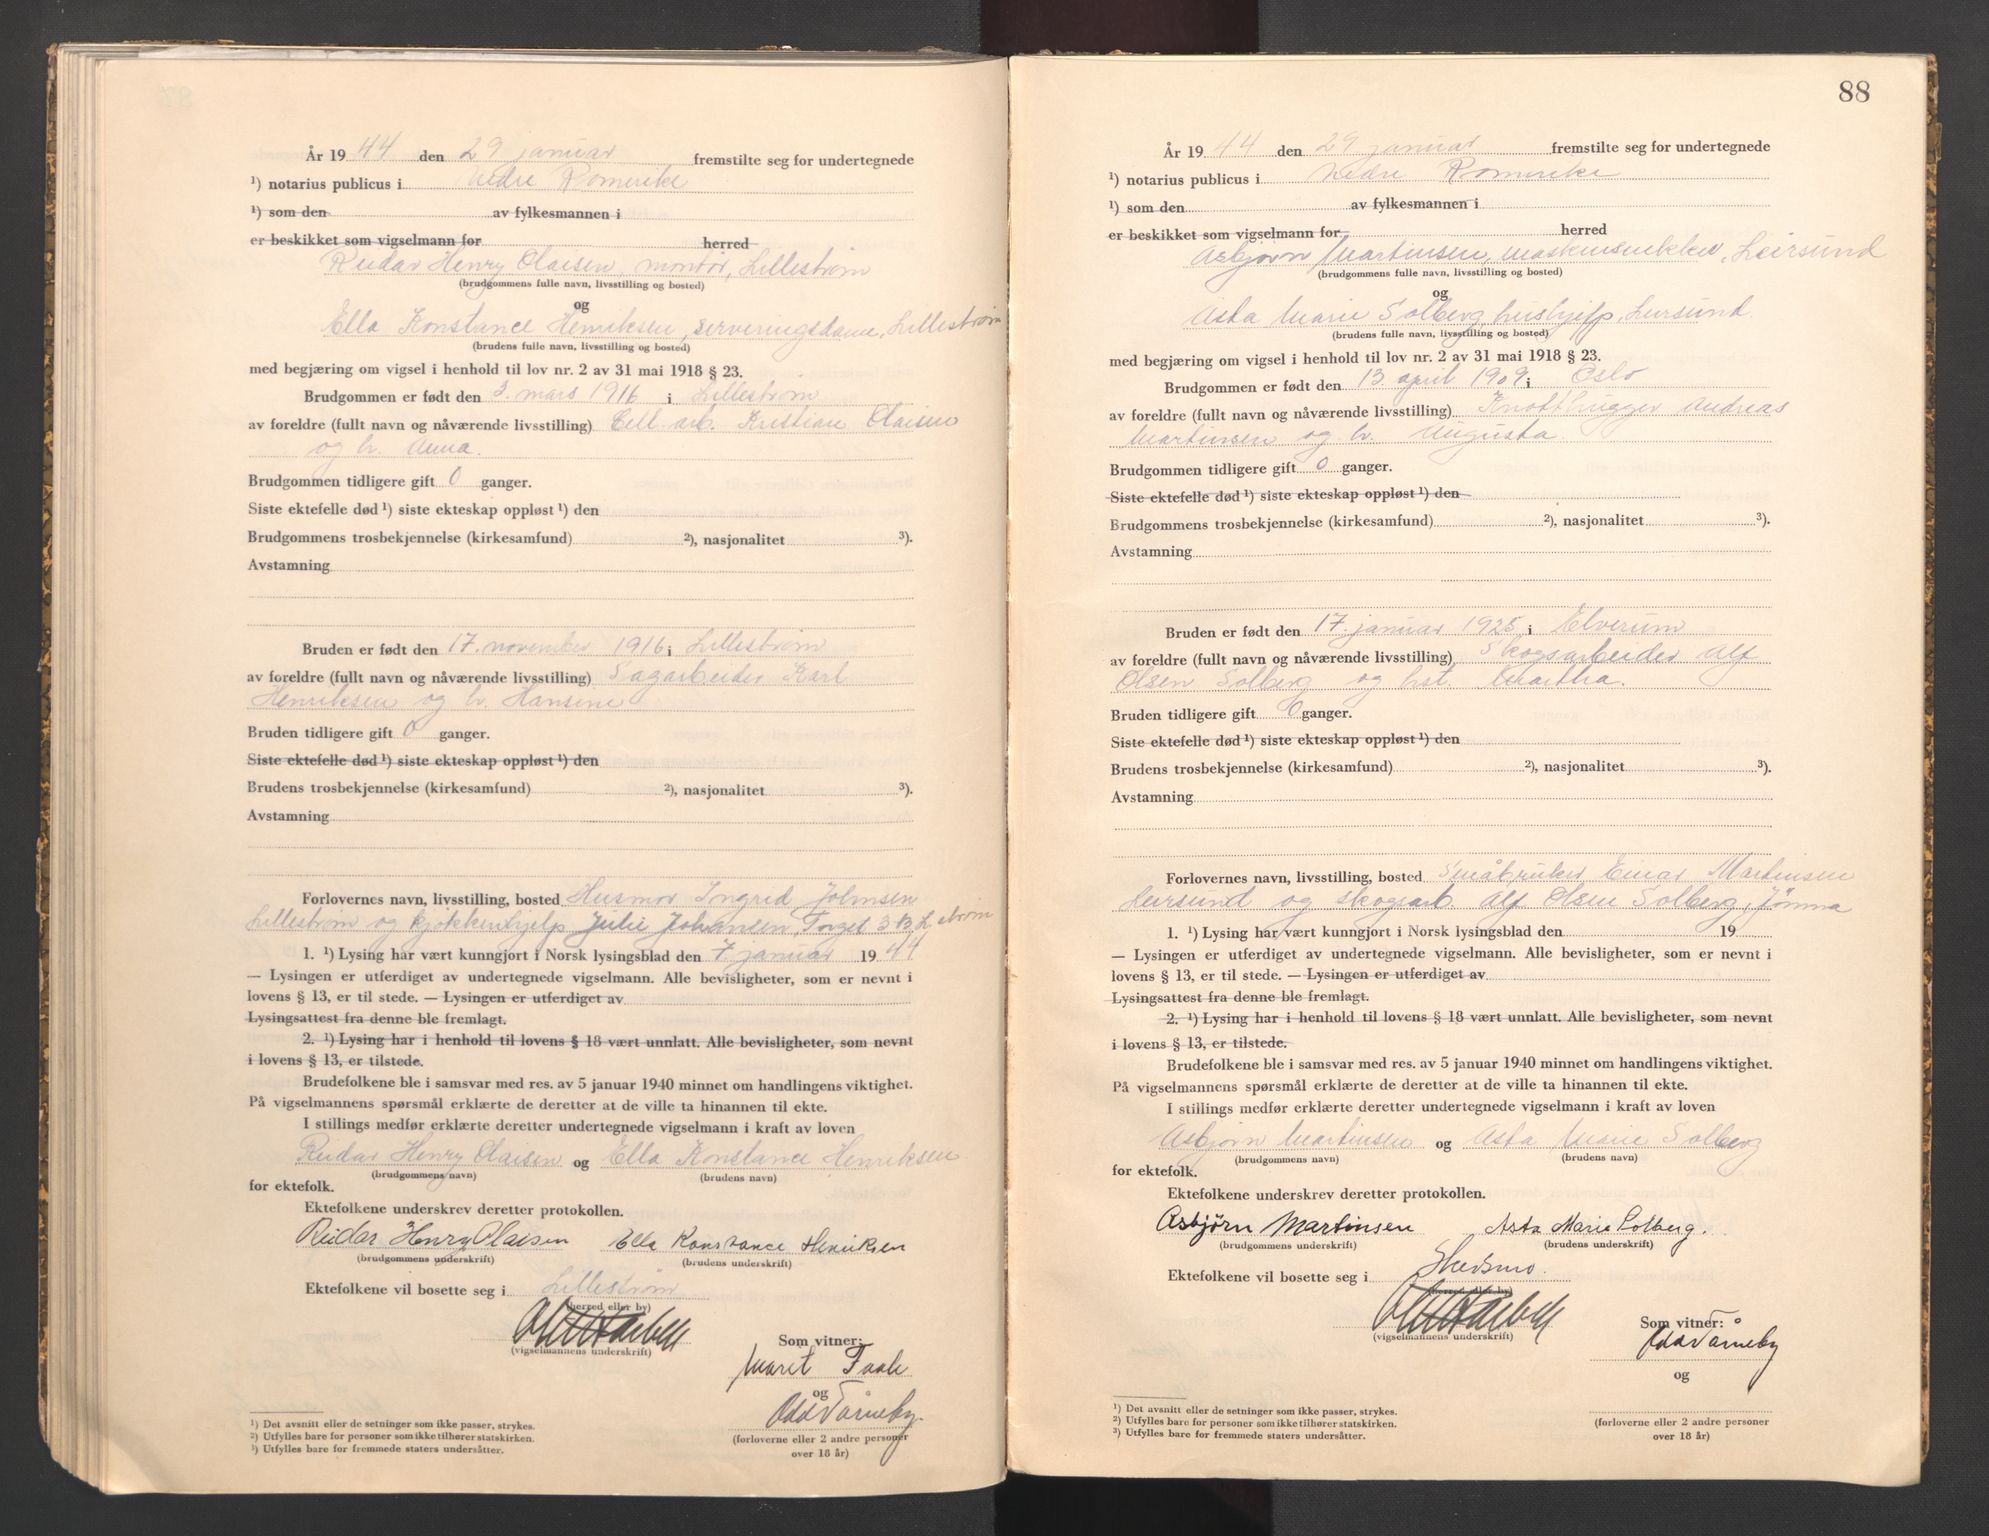 År 19 44 den 29 januar fremstilte seg for undertegnede
¹) notarius publicus i Nedre Romerike
¹) som den av fylkesmannen i
er beskikket som vigselmann for herred
Reidar Henry Olaisen, montør, Lillestrøm
(brudgommens fulle navn, livsstilling og bosted)
og
Ella Konstance Henriksen, serveringsdame, Lillestrøm
(brudens fulle navn, livsstilling og bosted)
med begjæring om vigsel i henhold til lov nr. 2 av 31 mai 1918 § 23.
Brudgommen er født den 3. mars 1916 i Lillestrøm
av foreldre (fullt navn og nåværende livsstilling) Cell. arb. Kristian Olaisen
og h. Anna.
Brudgommen tidligere gift 0 ganger.
Siste ektefelle død ¹) siste ekteskap oppløst ¹) den
Brudgommens trosbekjennelse (kirkesamfund) ²), nasjonalitet ³).
Avstamning
Bruden er født den 17. november 1916 i Lillestrøm
av foreldre (fullt navn og nåværende livsstilling) Sagarbeider Karl
Henriksen og h. Hansine
Bruden tidligere gift 0 ganger.
Siste ektefelle død ¹) siste ekteskap oppløst ¹) den
Brudens trosbekjennelse (kirkesamfund) ²), nasjonalitet ³).
Avstamning
Forlovernes navn, livsstilling, bosted Husmor Ingrid Johnsen
Lillestrøm og kjøkkenhjelp Julie Johansen, Torget 3 B, L.strøm
1. ¹) Lysing har vært kunngjort i Norsk lysingsblad den 7. januar 19 44
— Lysingen er utferdiget av undertegnede vigselmann. Alle bevisligheter, som er nevnt i
lovens § 13, er til stede. — Lysingen er utferdiget av
Lysingsattest fra denne ble fremlagt.
2. ¹) Lysing har i henhold til lovens § 18 vært unnlatt. Alle bevisligheter, som nevnt
i lovens § 13, er tilstede.
Brudefolkene ble i samsvar med res. av 5 januar 1940 minnet om handlingens viktighet.
På vigselmannens spørsmål erklærte de deretter at de ville ta hinannen til ekte.
I stillings medfør erklærte deretter undertegnede vigselmann i kraft av loven
Reidar Henry Olaisen og Ella Konstance Henriksen
(brudgommens navn) (brudens navn)
for ektefolk.
Ektefolkene underskrev deretter protokollen.
Reidar Henry Olaisen Ella Konstance Henriksen
(brudgommens underskrift) (brudens underskrift)
Ektefolkene vil bosette seg i Lillestrøm
(herred eller by)
(vigselmannens underskrift)
Som vitner:
Maret Faale
og
Odd Tårneby
(forloverne eller 2 andre personer
over 18 år)
¹) Det avsnitt eller de setninger som ikke passer, strykes.
²) Utfylles bare for personer som ikke tilhører statskirken.
³) Utfylles bare for fremmede staters undersåtter.
88
År 19 44 den 29 januar fremstilte seg for undertegnede
¹) notarius publicus i Nedre Romerike
¹) som den av fylkesmannen i
er beskikket som vigselmann for herred
Asbjørn Martinsen, maskinsnekker, Leirsund
(brudgommens fulle navn, livsstilling og bosted)
og
Asta Marie Solberg hushjelp, Leirsund
(brudens fulle navn, livsstilling og bosted)
med begjæring om vigsel i henhold til lov nr. 2 av 31 mai 1918 § 23.
Brudgommen er født den 13. april 1909 i Oslo
av foreldre (fullt navn og nåværende livsstilling) Knotthugger Andreas
Martinsen og h. Augusta.
Brudgommen tidligere gift 0 ganger.
Siste ektefelle død ¹) siste ekteskap oppløst ¹) den
Brudgommens trosbekjennelse (kirkesamfund) ²), nasjonalitet ³).
Avstamning
Bruden er født den 17. januar 1925 i Elverum
av foreldre (fullt navn og nåværende livsstilling) Skogsarbeider Alf
Olsen Solberg og hst. Martha.
Bruden tidligere gift 0 ganger.
Siste ektefelle død ¹) siste ekteskap oppløst ¹) den
Brudens trosbekjennelse (kirkesamfund) ²), nasjonalitet ³).
Avstamning
Forlovernes navn, livsstilling, bosted Småbruker Einar Martinsen
Leirsund og skogsarb. Alf Olsen Solberg, Jømna
1. ¹) Lysing har vært kunngjort i Norsk lysingsblad den 19
— Lysingen er utferdiget av undertegnede vigselmann. Alle bevisligheter, som er nevnt i
lovens § 13, er til stede. — Lysingen er utferdiget av
Lysingsattest fra denne ble fremlagt.
2. ¹) Lysing har i henhold til lovens § 18 vært unnlatt. Alle bevisligheter, som nevnt
i lovens § 13, er tilstede.
Brudefolkene ble i samsvar med res. av 5 januar 1940 minnet om handlingens viktighet.
På vigselmannens spørsmål erklærte de deretter at de ville ta hinannen til ekte.
I stillings medfør erklærte deretter undertegnede vigselmann i kraft av loven
Asbjørn Martinsen og Asta Marie Solberg
(brudgommens navn) (brudens navn)
for ektefolk.
Ektefolkene underskrev deretter protokollen.
Asbjörn Martinsen Asta Marie Solberg.
(brudgommens underskrift) (brudens underskrift)
Ektefolkene vil bosette seg i Skedsmo.
(herred eller by)
(vigselmannens underskrift)
Som vitner:
Odd Tårneby
og
(forloverne eller 2 andre personer
over 18 år)
¹) Det avsnitt eller de setninger som ikke passer, strykes.
²) Utfylles bare for personer som ikke tilhører statskirken.
³) Utfylles bare for fremmede staters undersåtter.